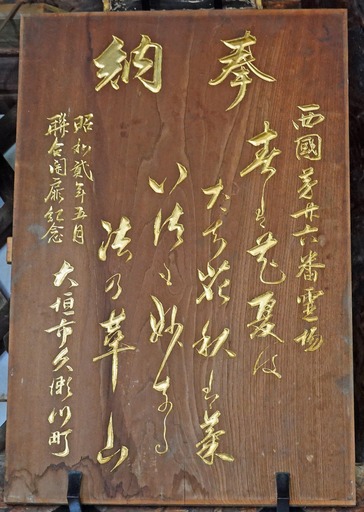 奉納
西國第廿六番靈場
春は花夏は
たち花秋は菊
いつも妙なる
法乃華山
昭和貳年五月
聯合開扉紀念
大垣市久瀬川町